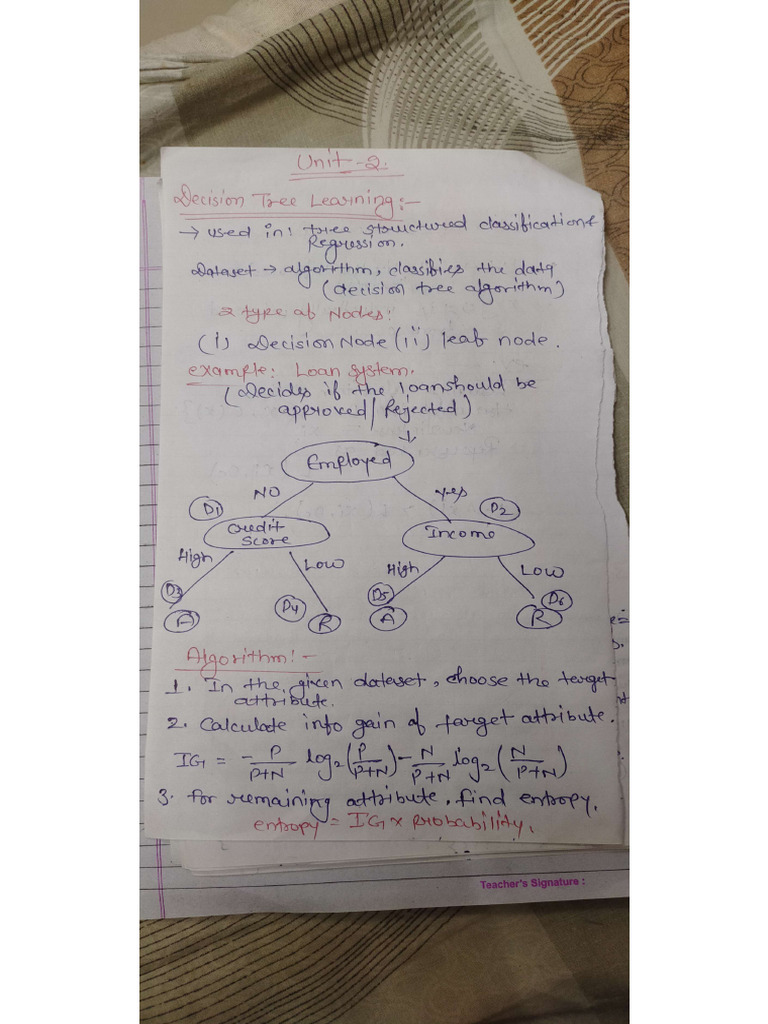 Unit-2.
Decision Tree Learning:-
→ used in: tree structured classification &
Regression.
Dataset → algorithm, classifies the data
(decision tree algorithm)
2 type of Nodes:
(i) Decision Node (ii) leaf node.
example: Loan system.
(Decides if the loan should be
approved/Rejected)
Employed
NO yes
D1 D2
Credit
Score
Income
High Low High Low
D3 D4 D5 D6
A R A R
Algorithm:-
1. In the given dataset, choose the target
attribute.
2. Calculate info gain of target attribute.
IG = -P/P+N log2(P/P+N) - N/P+N log2(N/P+N)
3. for remaining attribute, find entropy.
entropy = IG × Probability.
Teacher's Signature :